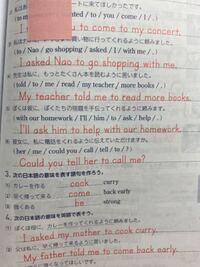 ートに来てほしかったです。
nted / to / you / come / I / . )
to come to my concert.
(to / Nao / go shopping / asked / I / with me / . )
I asked Nao to go shopping with me.
先生は私に、もっとたくさん本を読むように言いました。
(told / to / me / read / my teacher / more books / . )
My teacher told me to read more books.
ぼくは彼に、ぼくたちの宿題を手伝ってくれるように頼みます。
(with our homework / I'll / him / to / ask / help / . )
I'll ask him to help with our homework.
彼女に、私に電話をくれるように伝えていただけますか。
(her / me / could you / call / tell / to / ? )
Could you tell her to call me?
3. 次の日本語の意味を表す語句を作ろう。
(1) カレーを作る cook curry
(2) 早く帰って来る come back early
(3) 強くある be strong
4. 次の日本語の意味を英語で表そう。
(1) ぼくは母に、カレーを作ってくれるように頼みました。
I asked my mother to cook curry.
(2) 父は私に、早く帰って来るように言いました。
My father told me to come back early.